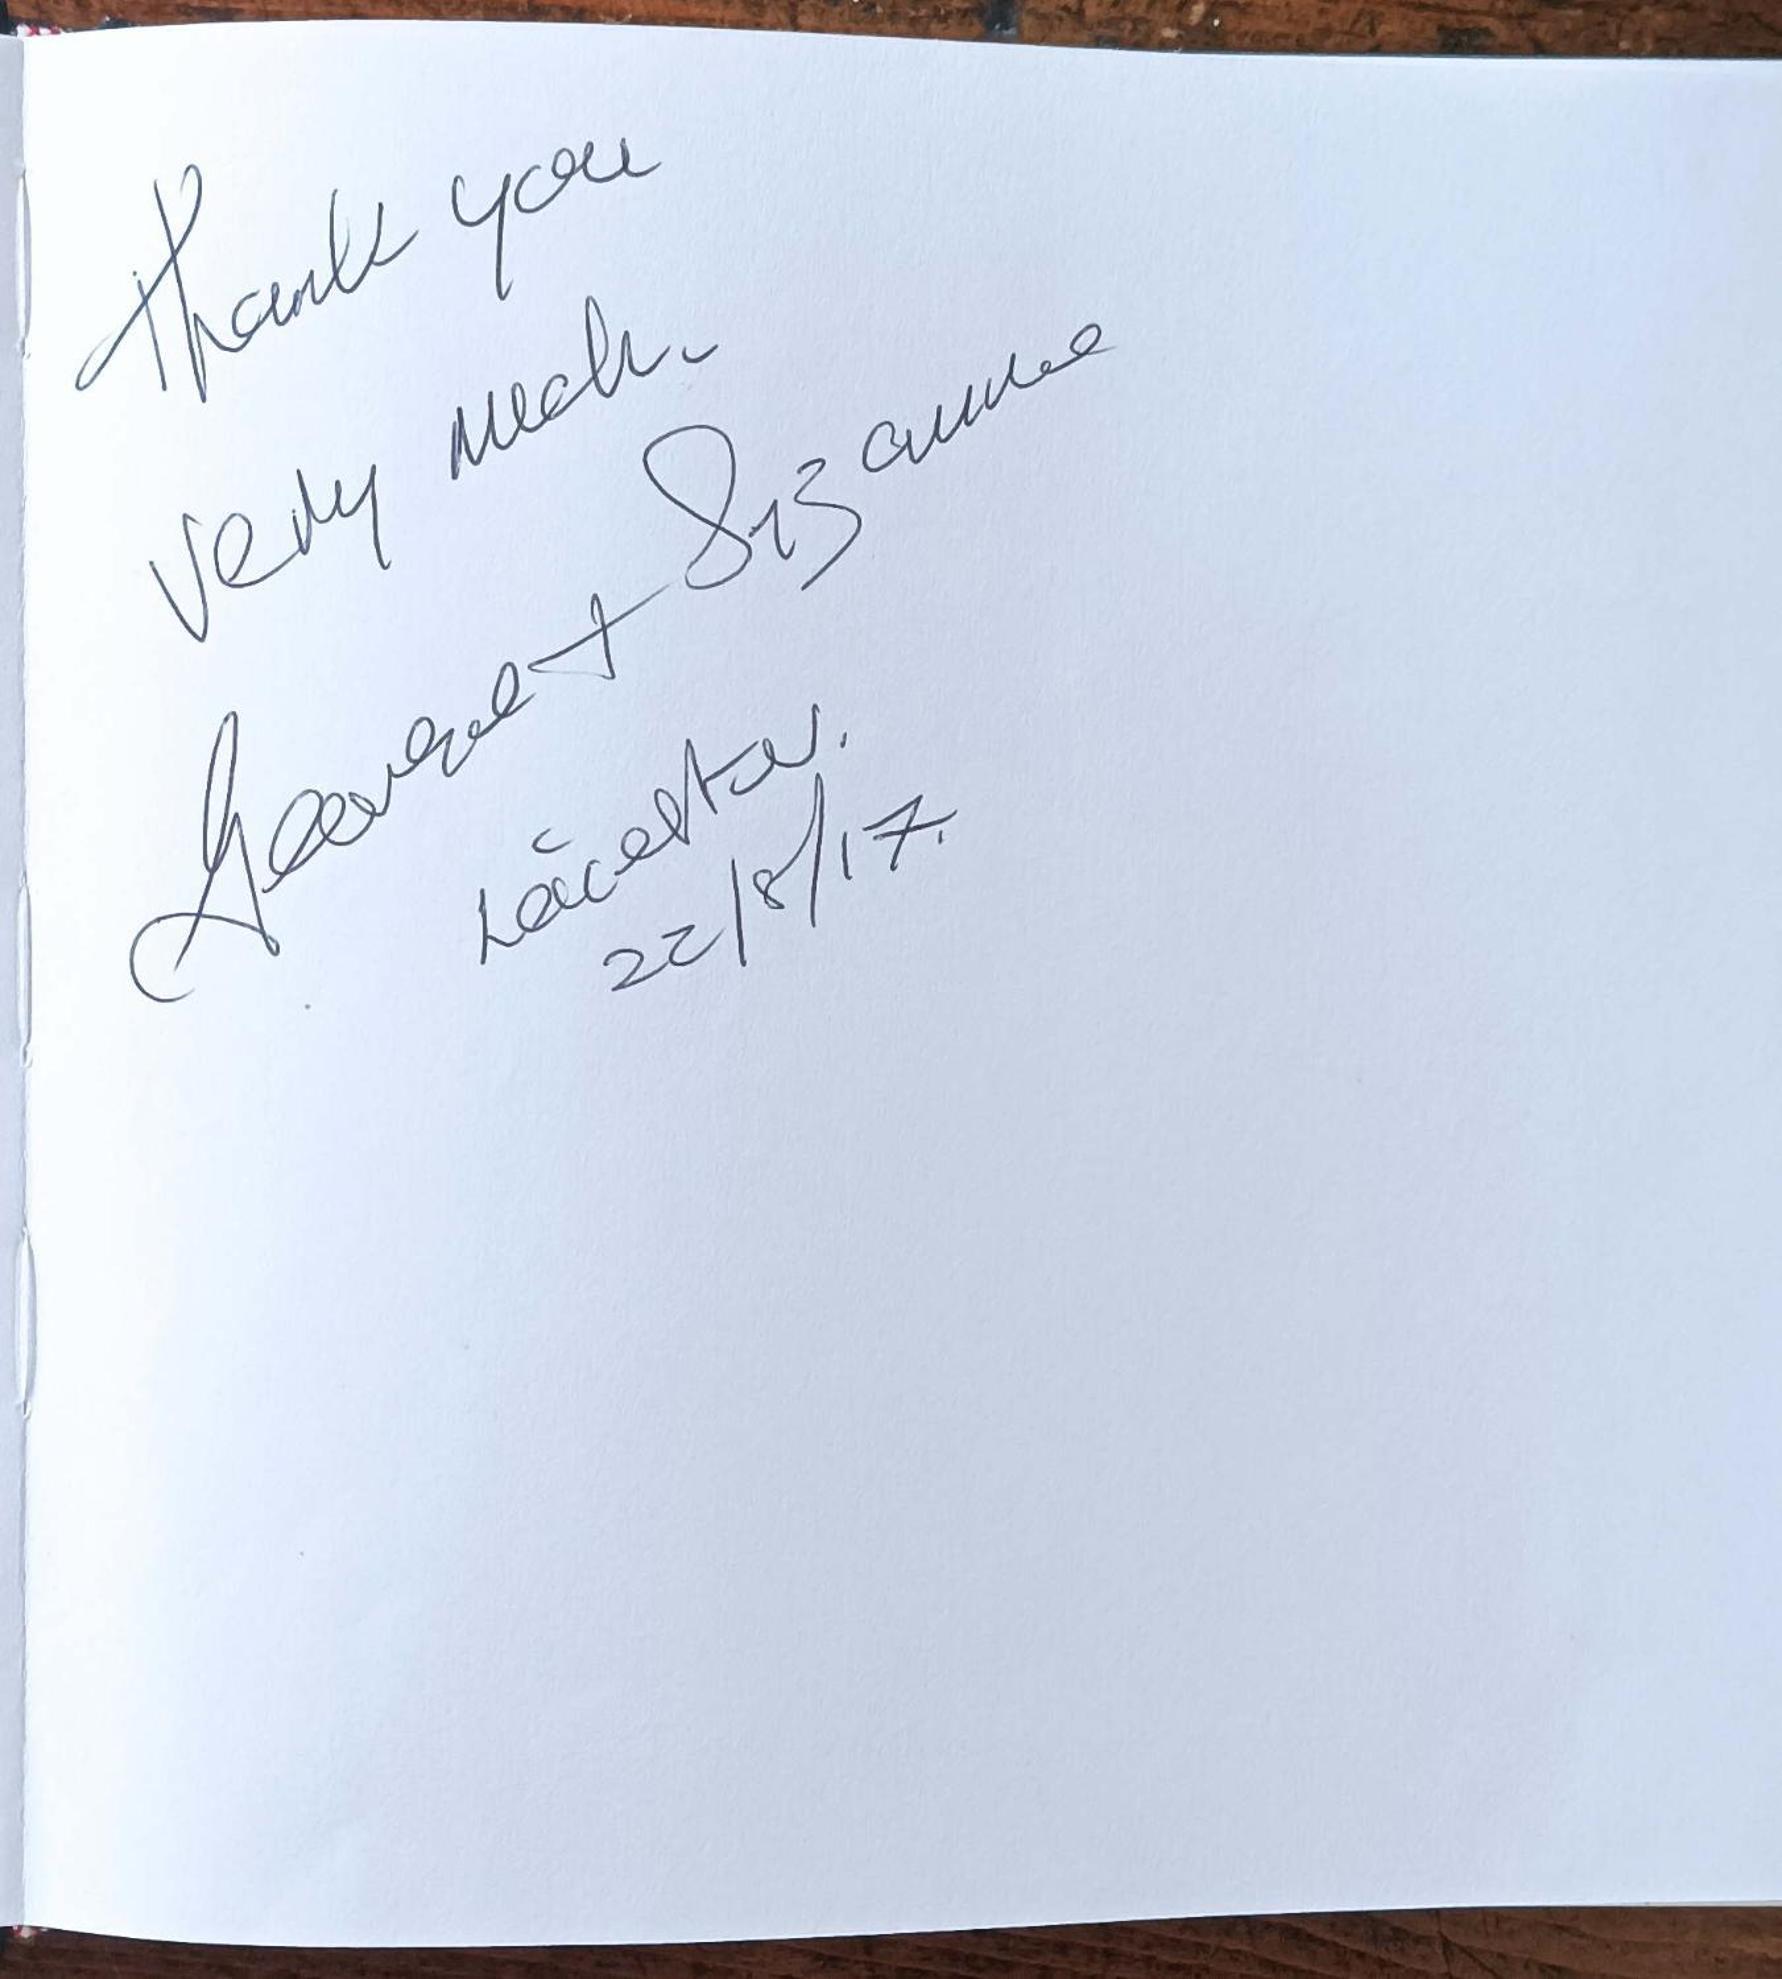 Thank you
very much.
George + Suzanne
Leicester.
22/8/17.